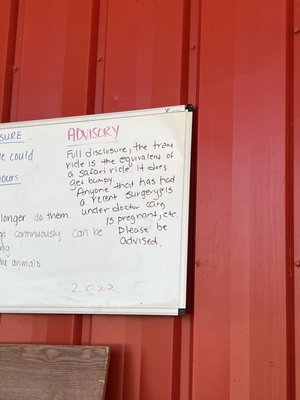 SURE
e could
ours
longer do them.
continuously can be
ng
he animals
ADVISORY
Full disclosure, the tram
ride is the equivalent of
a safari ride it does
get bumpy.
Anyone that has had
a recent surgery, is
under doctor care,
is pregnant, etc.
Please be
advised.